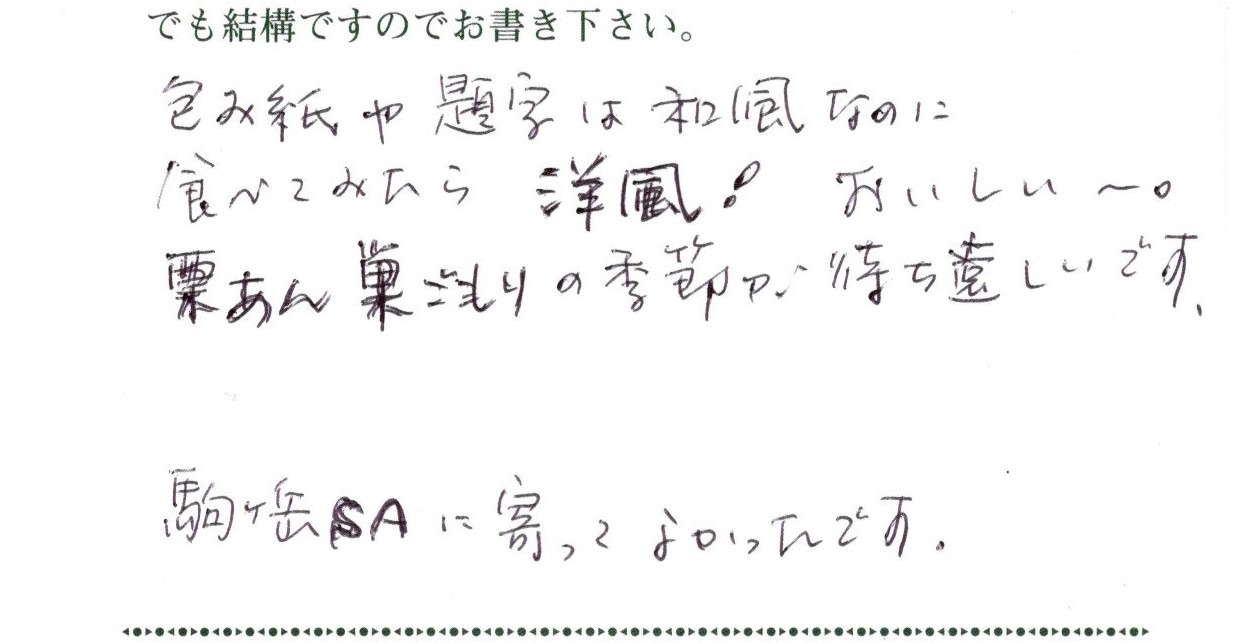 でも結構ですのでお書き下さい。
包み紙や題字は和風なのに
食べてみたら 洋風! おいしい〜。
栗あん巣ごもりの季節が待ち遠しいです、
駒ヶ岳SAに寄ってよかったんです.